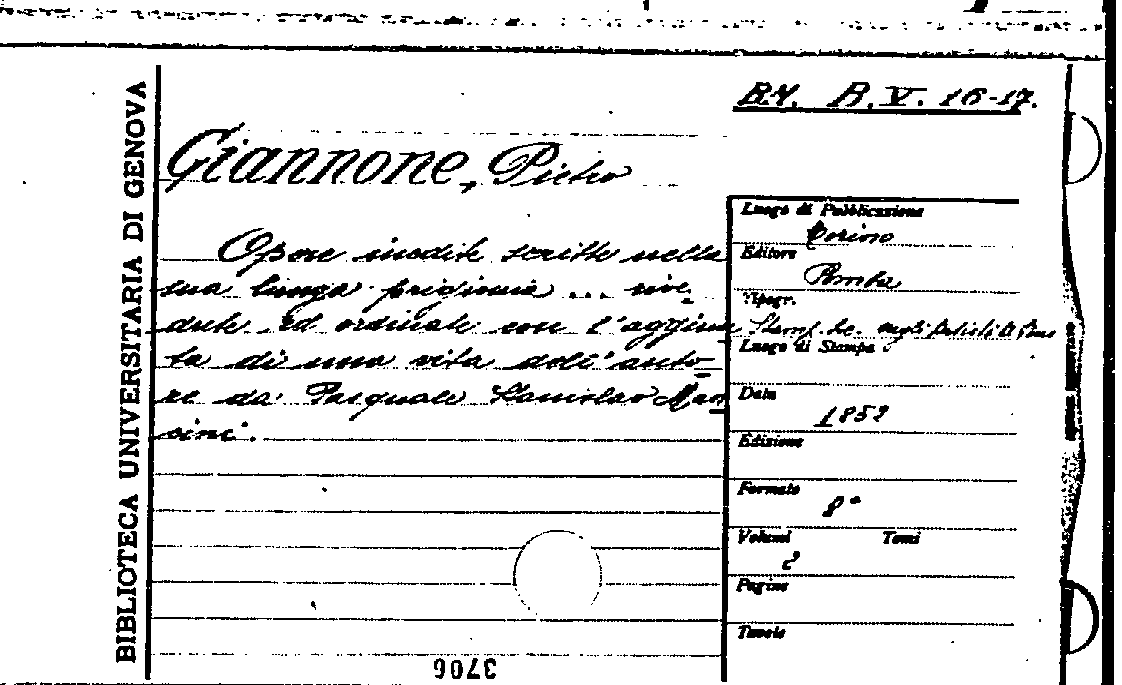 BIBLIOTECA UNIVERSITARIA DI GENOVA
B.Y. A.V. 16-17.
Giannone, Pietro
Opere inedite scritte nella
sua lunga prigionia ... rive
dute ed ordinate con l'aggiun
ta di una vita dell'auto
re da Pasquale Stanislao Man
cini.
Luogo di Pubblicazione
Torino
Editore
Pomba
Tipogr.
Stamp. degli Artisti
Luogo di Stampa
Data
1852
Edizione
Formato
8°
Volumi Tomi
2
Pagine
Tavole
3706